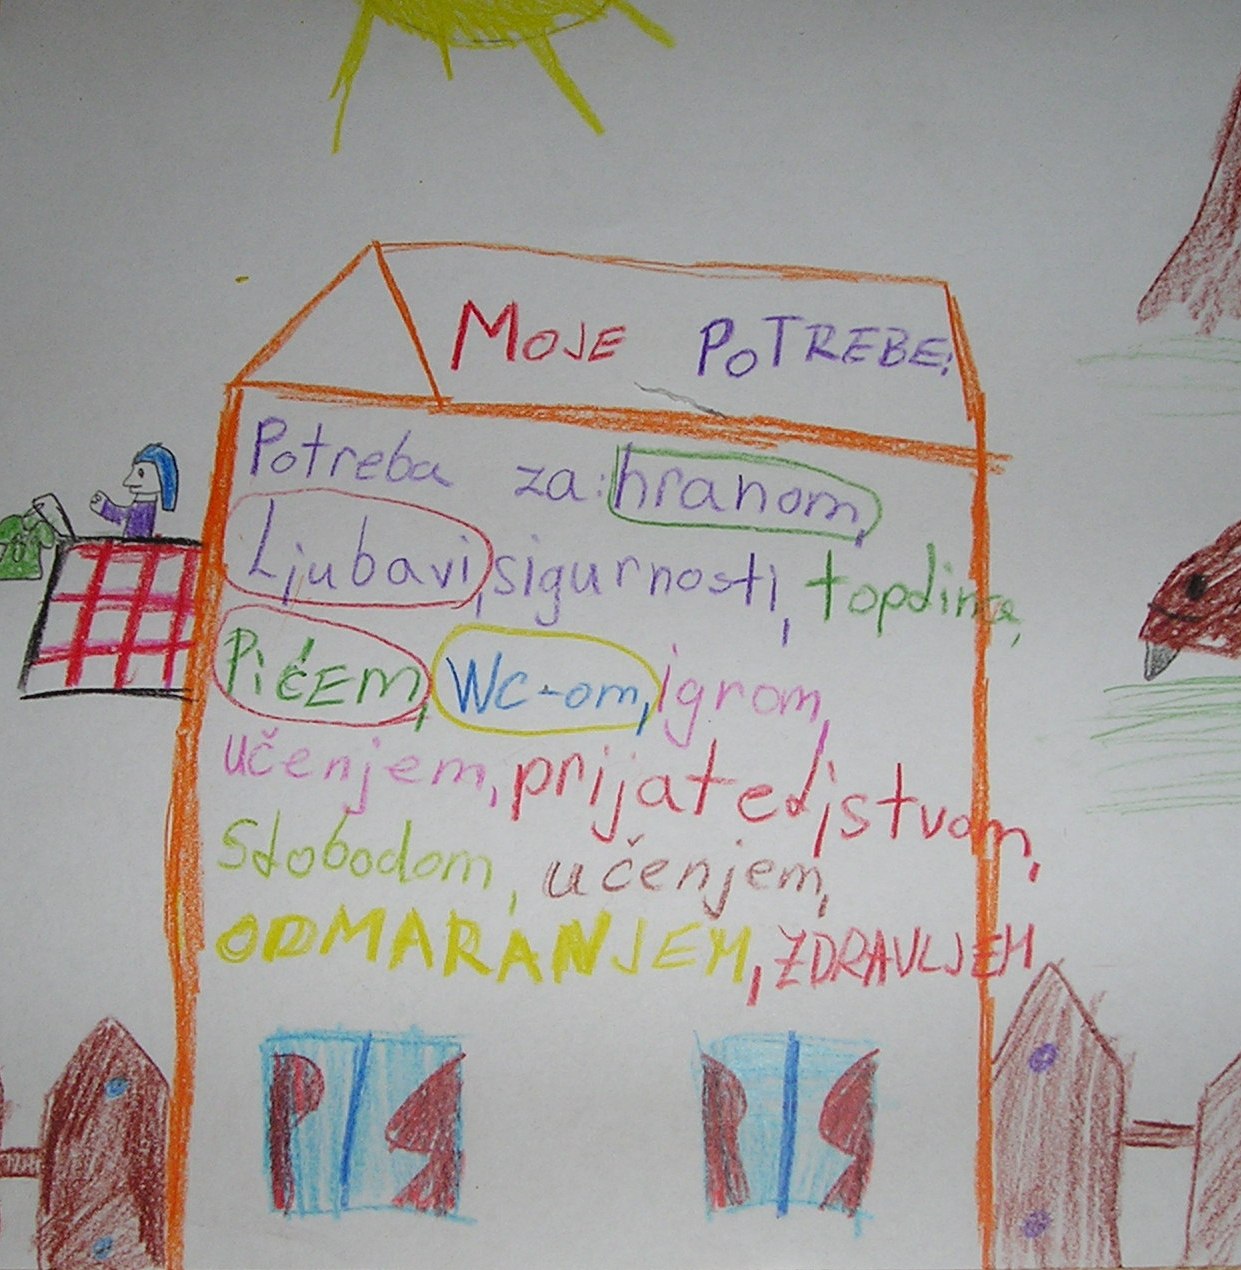 MOJE POTREBE:
Potreba za: hranom,
Ljubavi, sigurnosti, toplina,
PićEm, WC-om, igrom,
učenjem, prijateljstvom,
Slobodom, učenjem,
ODMARANJEM, ZDRAVLJEM